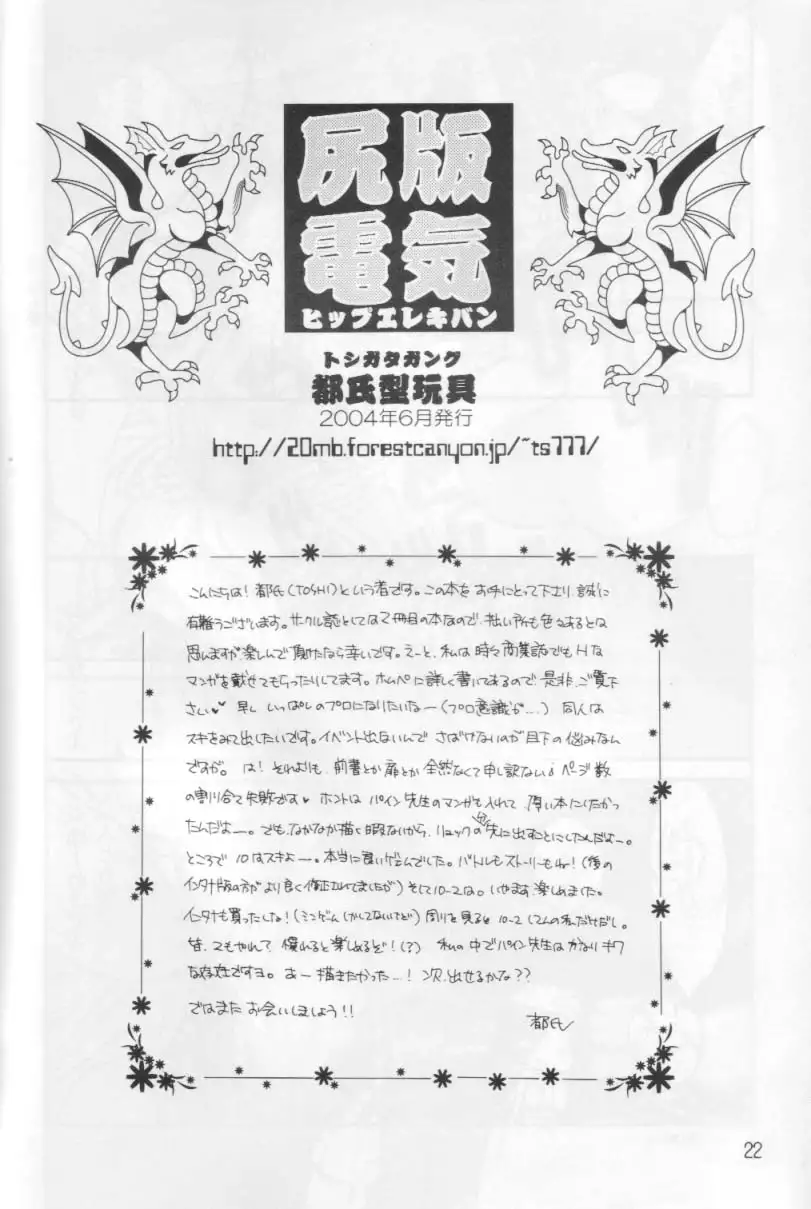 尻版
電気
ヒップエレキバン
トシガタガング
都氏型玩具
2004年6月発行
http://20mb.forestcanyon.jp/~ts777/
こんにちは!都氏(TOSHI)という者です。この本をお手にとって下さり、誠に
有難うございます。サークル誌としては2冊目の本なので、拙い所も色々あるとは
思いますが楽しんで頂けたなら幸いです。えーと、私は時々商業誌でもHな
マンガを載せてもらったりしてます。ホムペに詳しく書いてあるので是非、ご覧下
さい♥♥早く、いっぱしのプロになりたいなー(プロ意識が…)同人は
スキをみて出したいです。イベント出ないんで さばけないのが目下の悩みなん
ですが。は!それよりも、前書とか扉とか全然なくて申し訳ない。ページ数
の割り合て失敗です♥ホントは パイン先生のマンガも入れて 厚い本にしたかっ
たんだよー。でも、なかなか描く暇ないから、リュックの分先に出すことにしたんだよー。
ところで 10はスキよー。本当に良いゲームでした。バトルもストーリーもね!(後の
インタナ版の方がより良く修正されてましたが)そして10-2は。いやます、楽しめました。
インタナも買ったしな!(ミニゲームしかしてないけど)周りを見ると 10-2 してんの私だけだし。
皆、2もやれって 慣れると楽しめるぞ!(?) 私の中でパイン先生はかなりキワ
な存在ですヨ。あー描きたかった…!次、出せるかな??
ではまた お会いしましょう!!
都氏
22